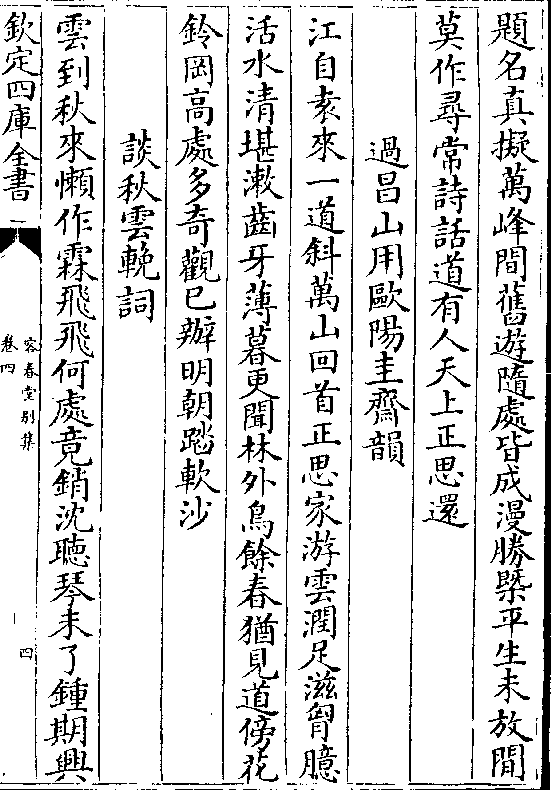 題名真擬萬峰間舊遊隨處皆成漫勝槩平生未放閒
莫作尋常詩話道有人天上正思還
過昌山用歐陽圭齋韻
江自袁來一道斜萬山回首正思家游雲潤足滋胷臆
活水清堪漱齒牙薄暮更聞林外鳥餘春猶見道傍花
鈴岡高處多奇觀已辦明朝踏軟沙
談秋雲輓詞
雲到秋來懶作霖飛飛何處竟銷沈聽琴未了鍾期興
欽定四庫全書
容春堂别集
卷四
四